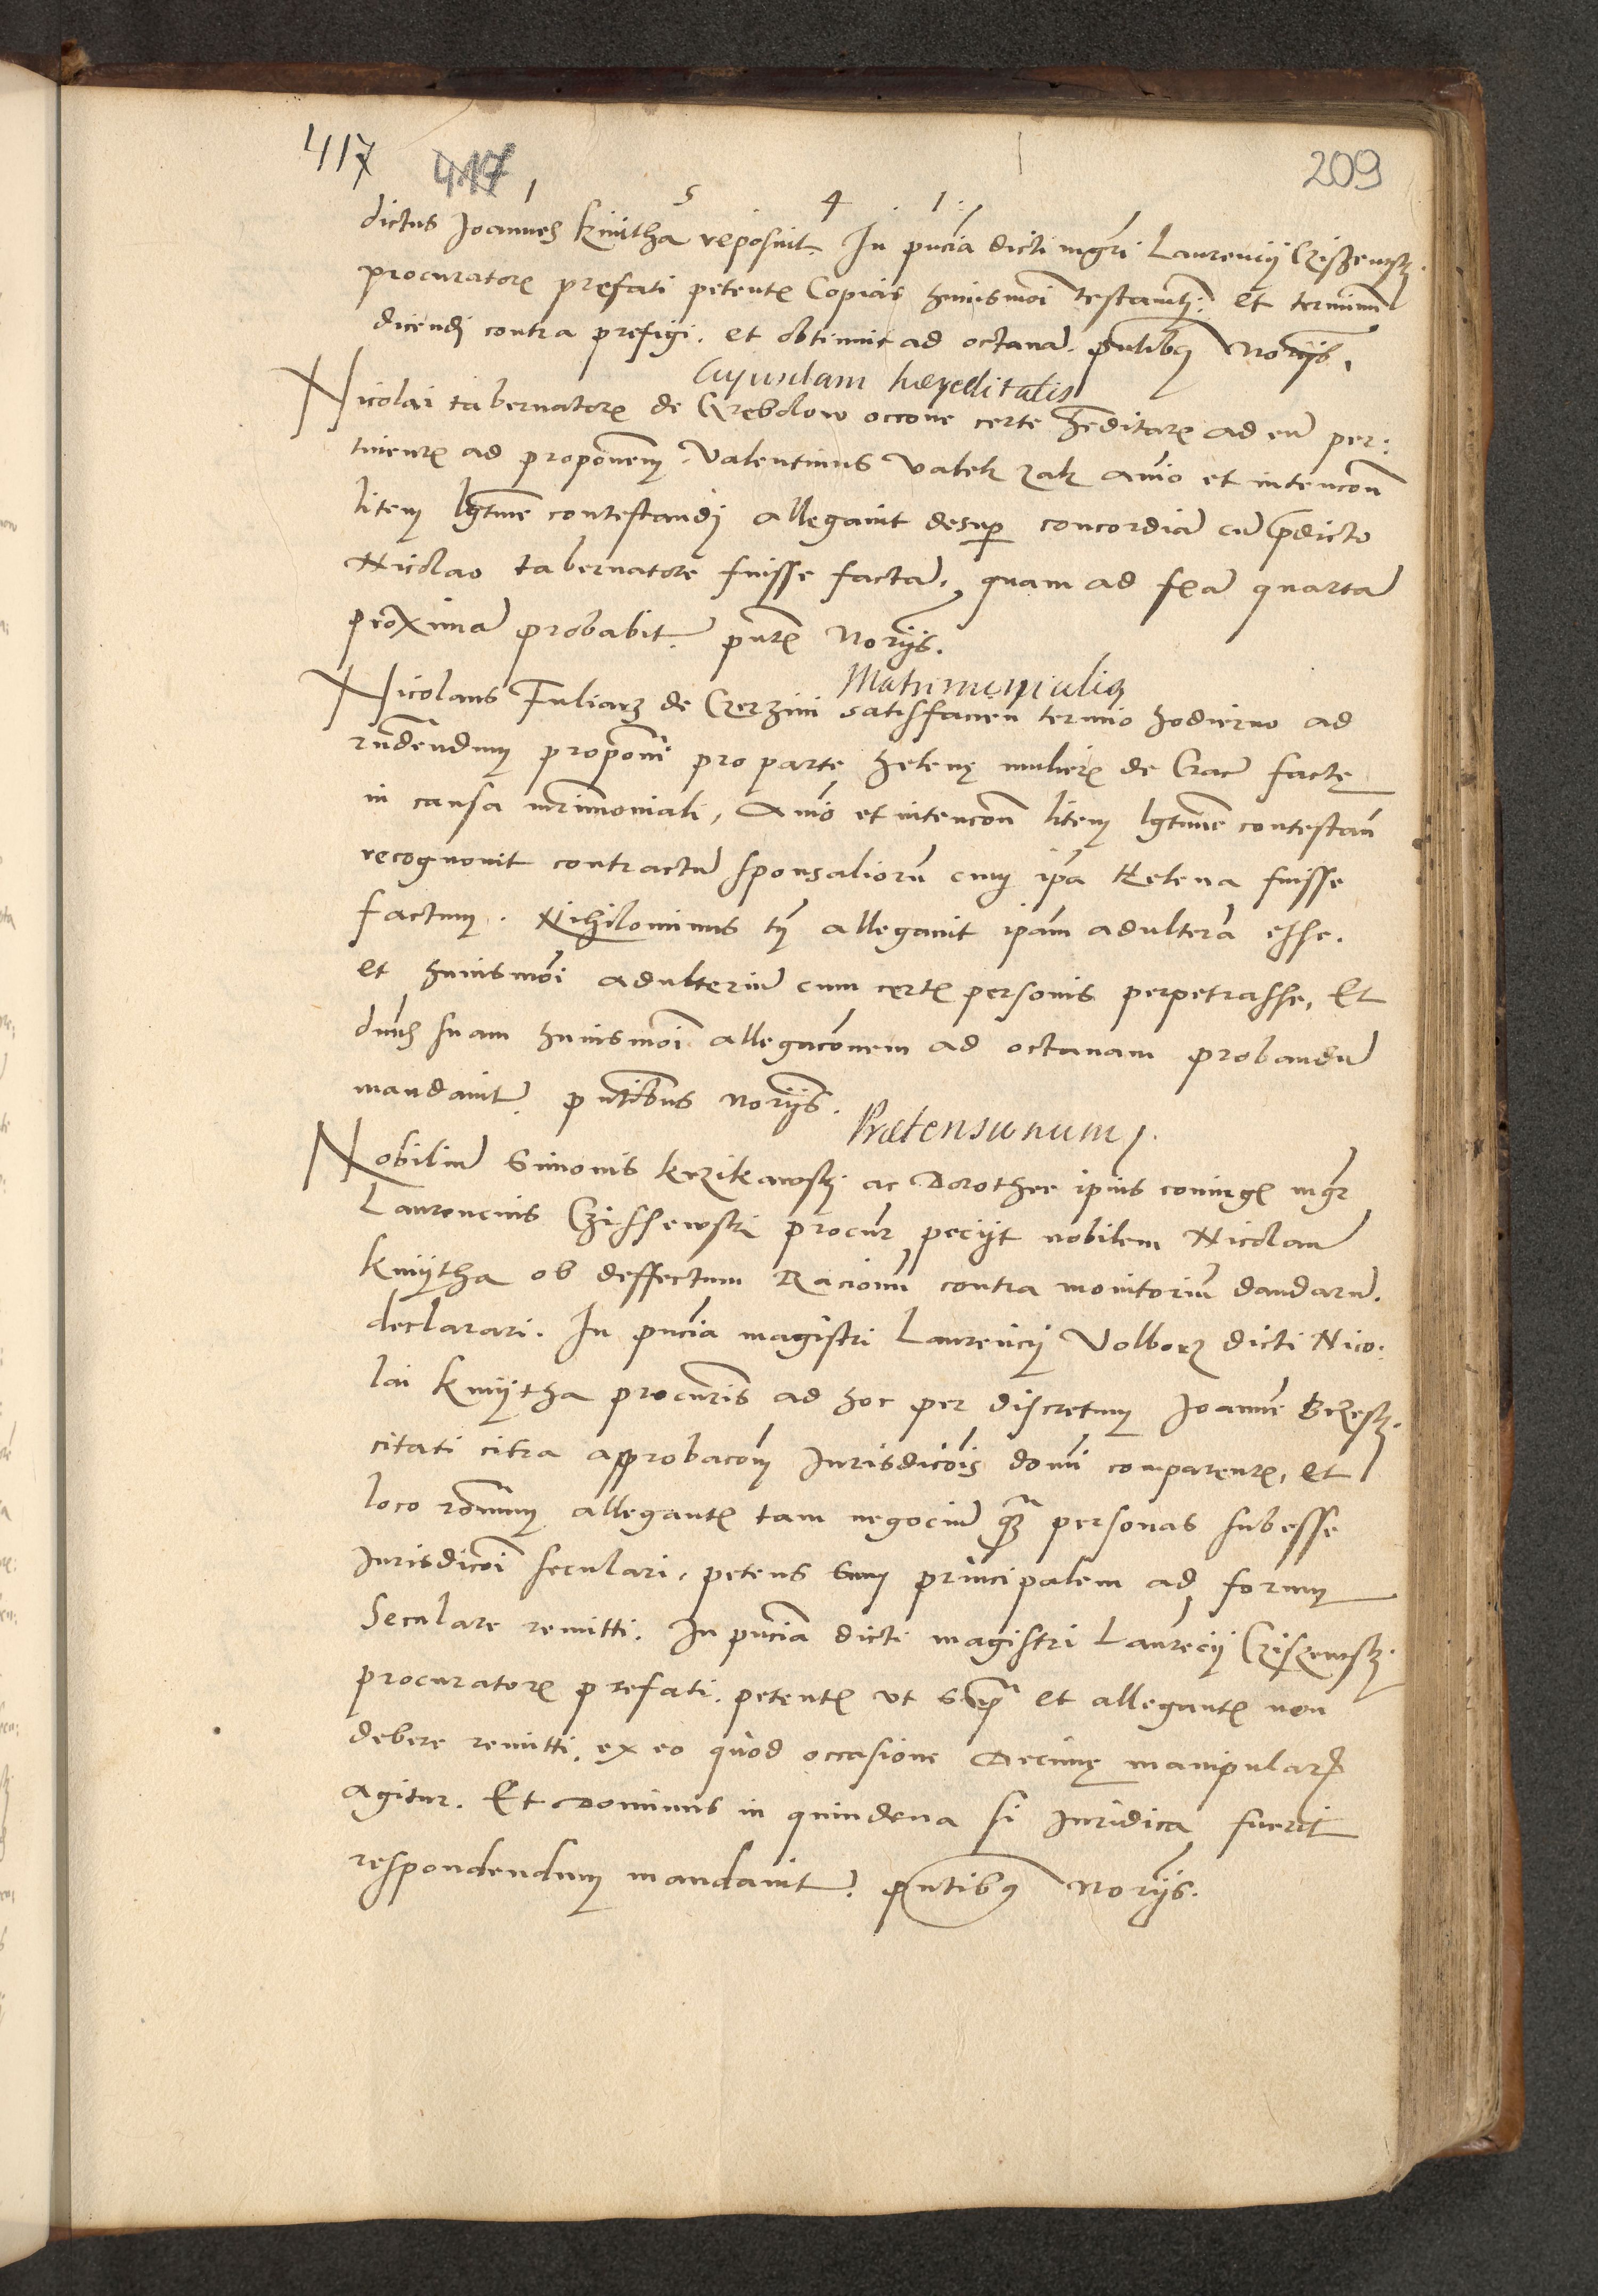 417 417 209
1 5 4 . 1 :
dictus Joannes Kmitha reposuit. In pncia dicti mgri Laurencij Cziszewsky
procuratoris prefati petentis Copias huiusmoi testamti. et terminum
dicendi contra prefigi. et obtinuit ad octauam. pntibus Norijs.
Cujusdam haereditatis
Nicolai tabernatoris de Grebolow occone certe hereditatis ad eum per:
tinentis ad proponem. Valentinus Valek zak animo et intencone
litem lgtime contestandj allegauit desup concordiam cum predicto
Nicolao tabernatore fuisse factam. quam ad feriam quartam
proximam probabit. pntibus Norijs.
Matrimonialis
Nicolaus Fuliarz de Czerzini satisfacien termino hodierno ad
rndendum proponi pro parte Helenę mulieris de Crac factę
in causa mrimoniali, Animo et intencone litem lgtime contestan
recognouit contractum sponsaliorum cum ipa Helena fuisse
factum. Nihilominus tn allegauit ipam adulteram esse.
et huiusmoi adulterium cum certis personis perpetrasse, Et
dnus suam huiusmoi allegaconem ad octauam probandum
mandauit. pntibus norijs.
Praetensionum
Nobilium Simonis Krzikawsky ac Dorothee ipius coniugis mgr
Laurencius Czissewski procur pecijt nobilem Nicolaum
Kmijtha ob deffectum Racionum contra monitorium dandarum.
declarari. In pncia magistri Laurencij Volborz dicti Nico:
lai Kmijtha procuris ad hoc per discretum Joannem
citati citra approbacoem Jurisdicois domi comparentis, et
loco ronum allegantis tam negocium quam personas subesse
Jurisdicoi seculari, petens suum principalem ad forum
Seculare remitti. In pncia dicti magistri Laurecij Cziszewsky
procuratoris prefati. petentis vt supra et allegantis non
debere remitti. ex eo quod occasione Decimę manipularis
agitur. Et Dominus in quindena si Juridica fuerit
respondendum mandauit. pntibus Norijs.